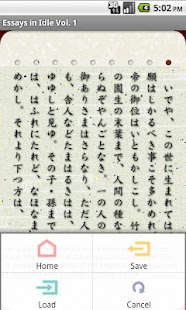 5:02 PM
Essays in Idle Vol. 1
いでや、この世に生まれては、
願はしかるべき事こそ多かめれ
帝の御位はいともかしこし。竹
の園生の末葉まで、人間の種な
らぬぞやんごとなき。一の人の
御ありさまはさらなり、ただ人
も、舎人などたまはるきはは、
ゆゆしと見ゆ。その子・孫まで
は、はふれにたれど、なほなま
めかし。それより下つ方は、
Home
Save
Load
Cancel